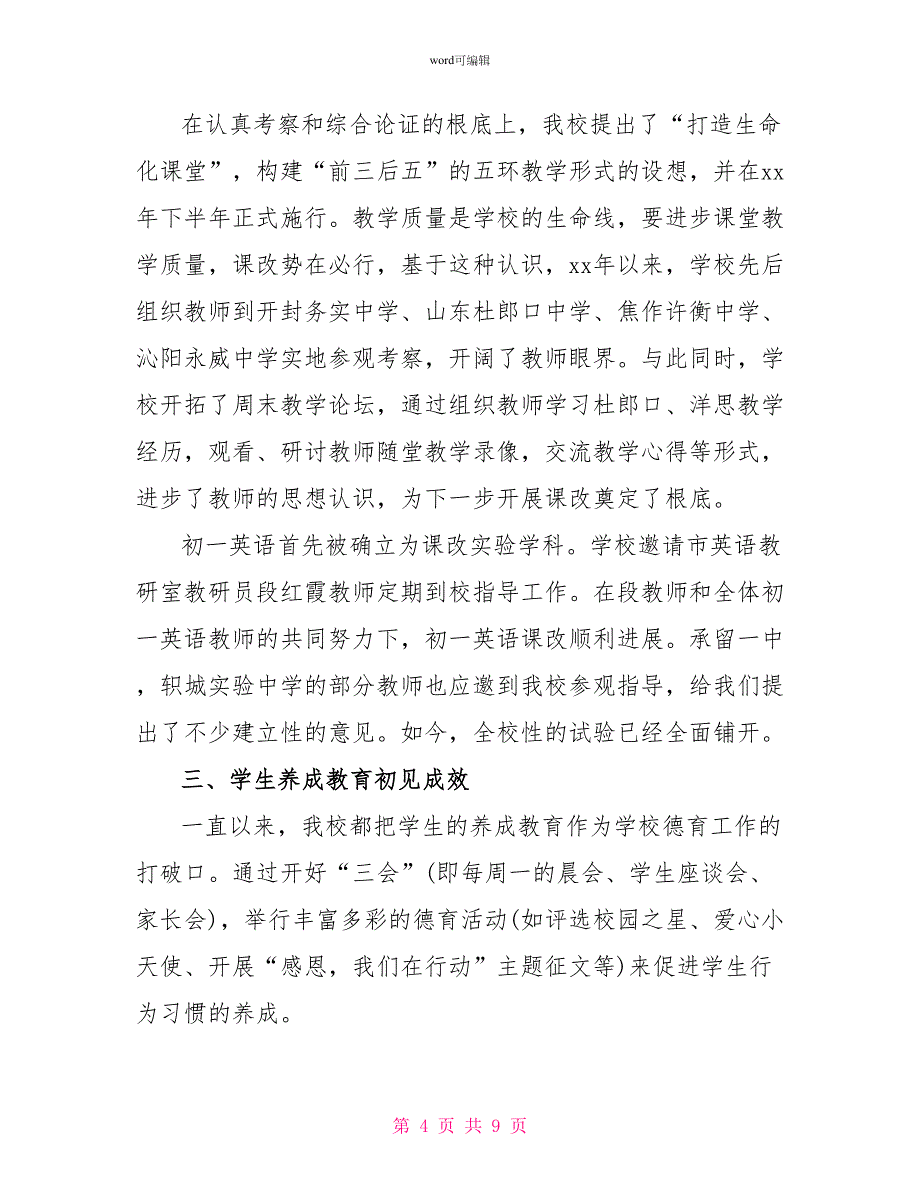 word可编辑
在认真考察和综合论证的根底上，我校提出了“打造生命
化课堂”，构建“前三后五”的五环教学形式的设想，并在xx
年下半年正式施行。教学质量是学校的生命线，要进步课堂教
学质量，课改势在必行，基于这种认识，xx年以来，学校先后
组织教师到开封务实中学、山东杜郎口中学、焦作许衡中学、
沁阳永威中学实地参观考察，开阔了教师眼界。与此同时，学
校开拓了周末教学论坛，通过组织教师学习杜郎口、洋思教学
经历，观看、研讨教师随堂教学录像，交流教学心得等形式，
进步了教师的思想认识，为下一步开展课改奠定了根底。
初一英语首先被确立为课改实验学科。学校邀请市英语教
研室教研员段红霞教师定期到校指导工作。在段教师和全体初
一英语教师的共同努力下，初一英语课改顺利进展。承留一中
，轵城实验中学的部分教师也应邀到我校参观指导，给我们提
出了不少建立性的意见。如今，全校性的试验已经全面铺开。
三、学生养成教育初见成效
一直以来，我校都把学生的养成教育作为学校德育工作的
打破口。通过开好“三会”(即每周一的晨会、学生座谈会、
家长会)，举行丰富多彩的德育活动(如评选校园之星、爱心小
天使、开展“感恩，我们在行动”主题征文等)来促进学生行
为习惯的养成。
第 4 页 共 9 页